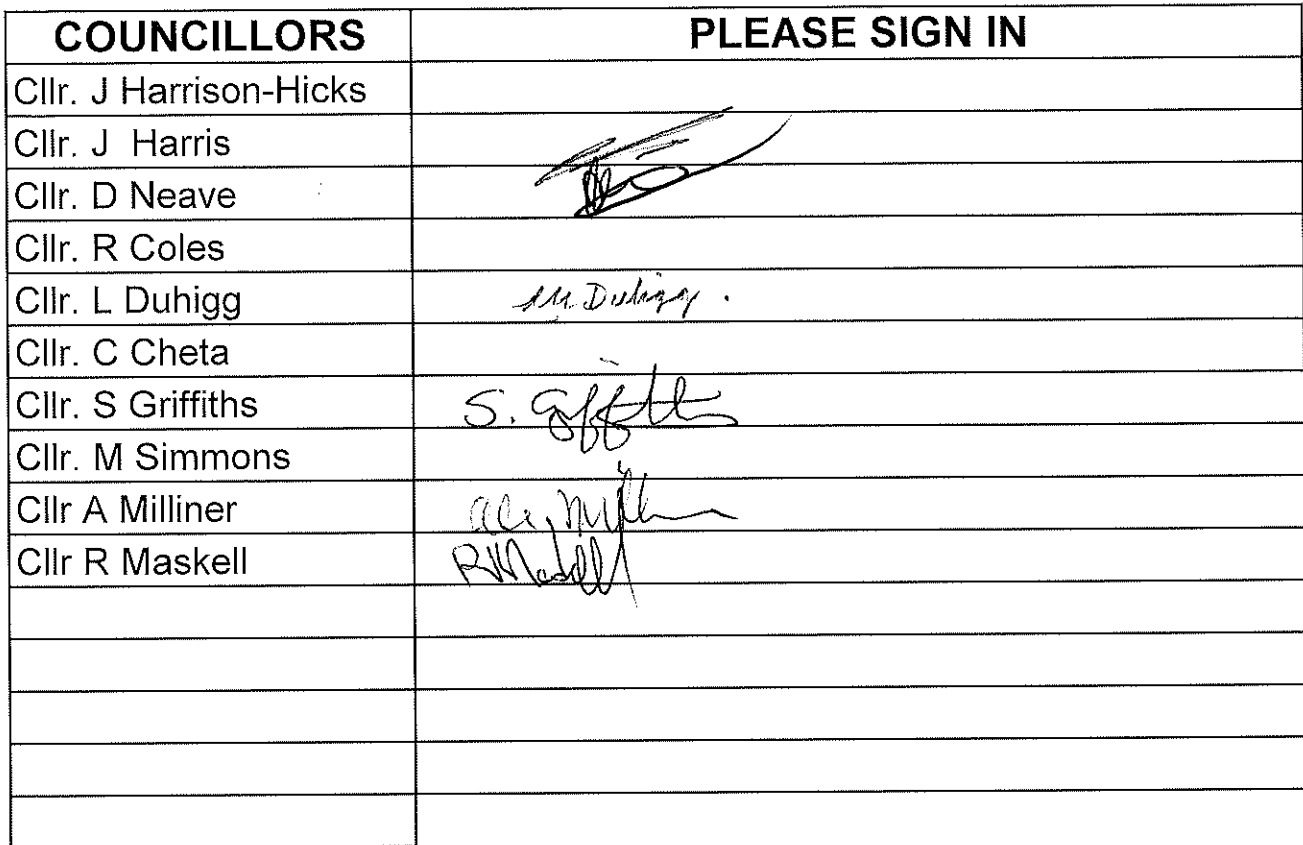 COUNCILLORS PLEASE SIGN IN
Cllr. J Harrison-Hicks
Cllr. J Harris
Cllr. D Neave
Cllr. R Coles
Cllr. L Duhigg Duhigg.
Cllr. C Cheta
Cllr. S Griffiths S. Griffiths
Cllr. M Simmons
Cllr A Milliner
Cllr R Maskell R Maskell